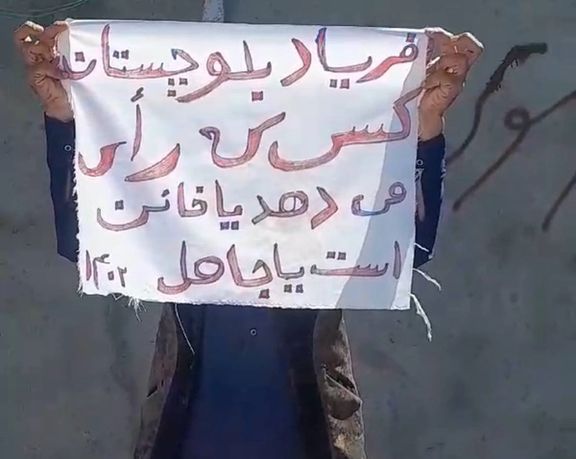 فریاد بلوچستان
کسی که رأی
می دهد یا خائن
است یا جاهل ۱۴۰۲